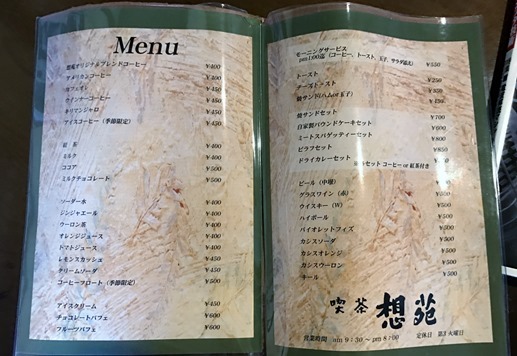 Menu
想苑オリジナルブレンドコーヒー ¥400
アメリカンコーヒー ¥400
カフェオレ ¥450
ウインナーコーヒー ¥450
キリマンジャロ ¥450
アイスコーヒー（季節限定） ¥450
紅 茶 ¥400
ミルク ¥400
ココア ¥500
ミルクチョコレート ¥500
ソーダー水 ¥400
ジンジャエール ¥400
ウーロン茶 ¥400
オレンジジュース ¥400
トマトジュース ¥400
レモンスカッシュ ¥450
クリームソーダ ¥450
コーヒーフロート（季節限定） ¥500
アイスクリーム ¥450
チョコレートパフェ ¥600
フルーツパフェ ¥600
モーニングサービス
pm1:00迄（コーヒー、トースト、玉子、サラダ添え） ¥550
トースト ¥250
チーズトースト
焼サンド(ハムor玉子)
焼サンドセット ¥700
自家製パウンドケーキセット ¥600
ミートスパゲッティーセット ¥800
ピラフセット ¥850
ドライカレーセット
セット コーヒー or 紅茶付き
ビール（中瓶）
グラスワイン（赤） ¥500
ウイスキー（W） ¥500
ハイボール ¥500
バイオレットフィズ ¥500
カシスソーダ ¥500
カシスオレンジ ¥500
カシスウーロン ¥500
キール ¥500
喫茶 想苑
営業時間 am 9:30 ~ pm 8:00 定休日 第3火曜日